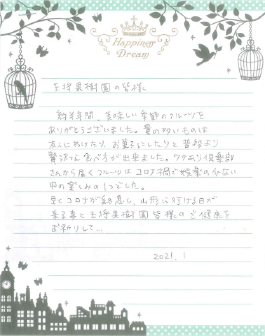 Happiness
Dream
王将果樹園の皆様
約半年間、美味しい季節のフルーツを
ありがとうございました。量の多いものは
友人にあげたり、お菓子にしたりと普段より
贅沢な食べ方が出来ました。ワクワク倶楽部
さんから届くフルーツはコロナ禍で娯楽の少ない
中の楽しみの1つでした。
早くコロナが終息し、山形に行ける日が
来る事と王将果樹園皆様のご健康を
お祈りして…
2021.1